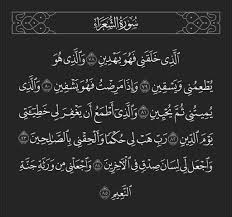 سُورَةُ الشُّعَرَاءِ
ٱلَّذِى خَلَقَنِى فَهُوَ يَهْدِينِ ٧٨ وَٱلَّذِى هُوَ
يُطْعِمُنِى وَيَسْقِينِ ٧٩ وَإِذَا مَرِضْتُ فَهُوَ يَشْفِينِ ٨٠ وَٱلَّذِى
يُمِيتُنِى ثُمَّ يُحْيِينِ ٨١ وَٱلَّذِىٓ أَطْمَعُ أَن يَغْفِرَ لِى خَطِيٓـَٔتِى
يَوْمَ ٱلدِّينِ ٨٢ رَبِّ هَبْ لِى حُكْمًا وَأَلْحِقْنِى بِٱلصَّٰلِحِينَ ٨٣
وَٱجْعَل لِّى لِسَانَ صِدْقٍ فِى ٱلْءَاخِرِينَ ٨٤ وَٱجْعَلْنِى مِن وَرَثَةِ جَنَّةِ
ٱلنَّعِيمِ ٨٥